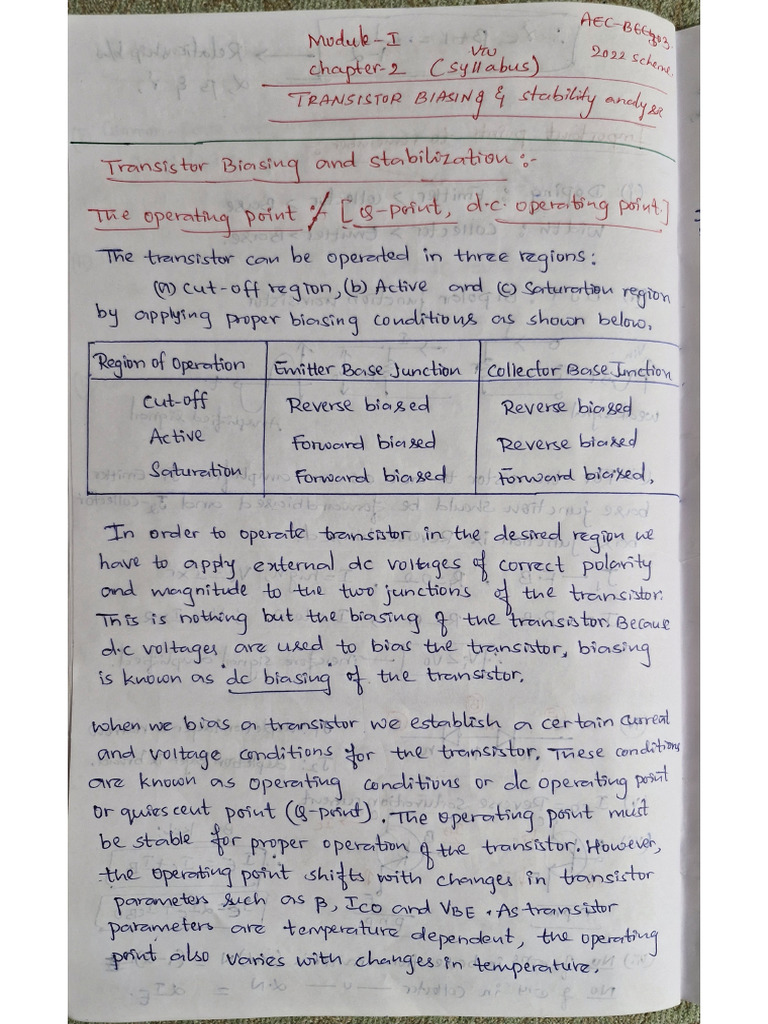 AEC-BEC303
2022 scheme
Module-I
VTU
chapter-2 (syllabus)
TRANSISTOR BIASING & stability analysis
Transistor Biasing and stabilization :-
The operating point :- [Q-point, d.c. operating point.]
The transistor can be operated in three regions:
(a) cut-off region, (b) Active and (c) Saturation region
by applying proper biasing conditions as shown below.
Region of Operation Emitter Base Junction Collector Base Junction
Cut-off Reverse biased Reverse biased
Active Forward biased Reverse biased
Saturation Forward biased Forward biased.
In order to operate transistor in the desired region we
have to apply external dc voltages of correct polarity
and magnitude to the two junctions of the transistor.
This is nothing but the biasing of the transistor. Because
d.c voltages are used to bias the transistor, biasing
is known as 'dc biasing' of the transistor.
When we bias a transistor we establish a certain current
and voltage conditions for the transistor. These conditions
are known as operating conditions or dc operating point
or quiescent point (Q-point). The operating point must
be stable for proper operation of the transistor. However,
the operating point shifts with changes in transistor
parameters such as β, ICO and VBE. As transistor
parameters are temperature dependent, the operating
point also varies with changes in temperature.